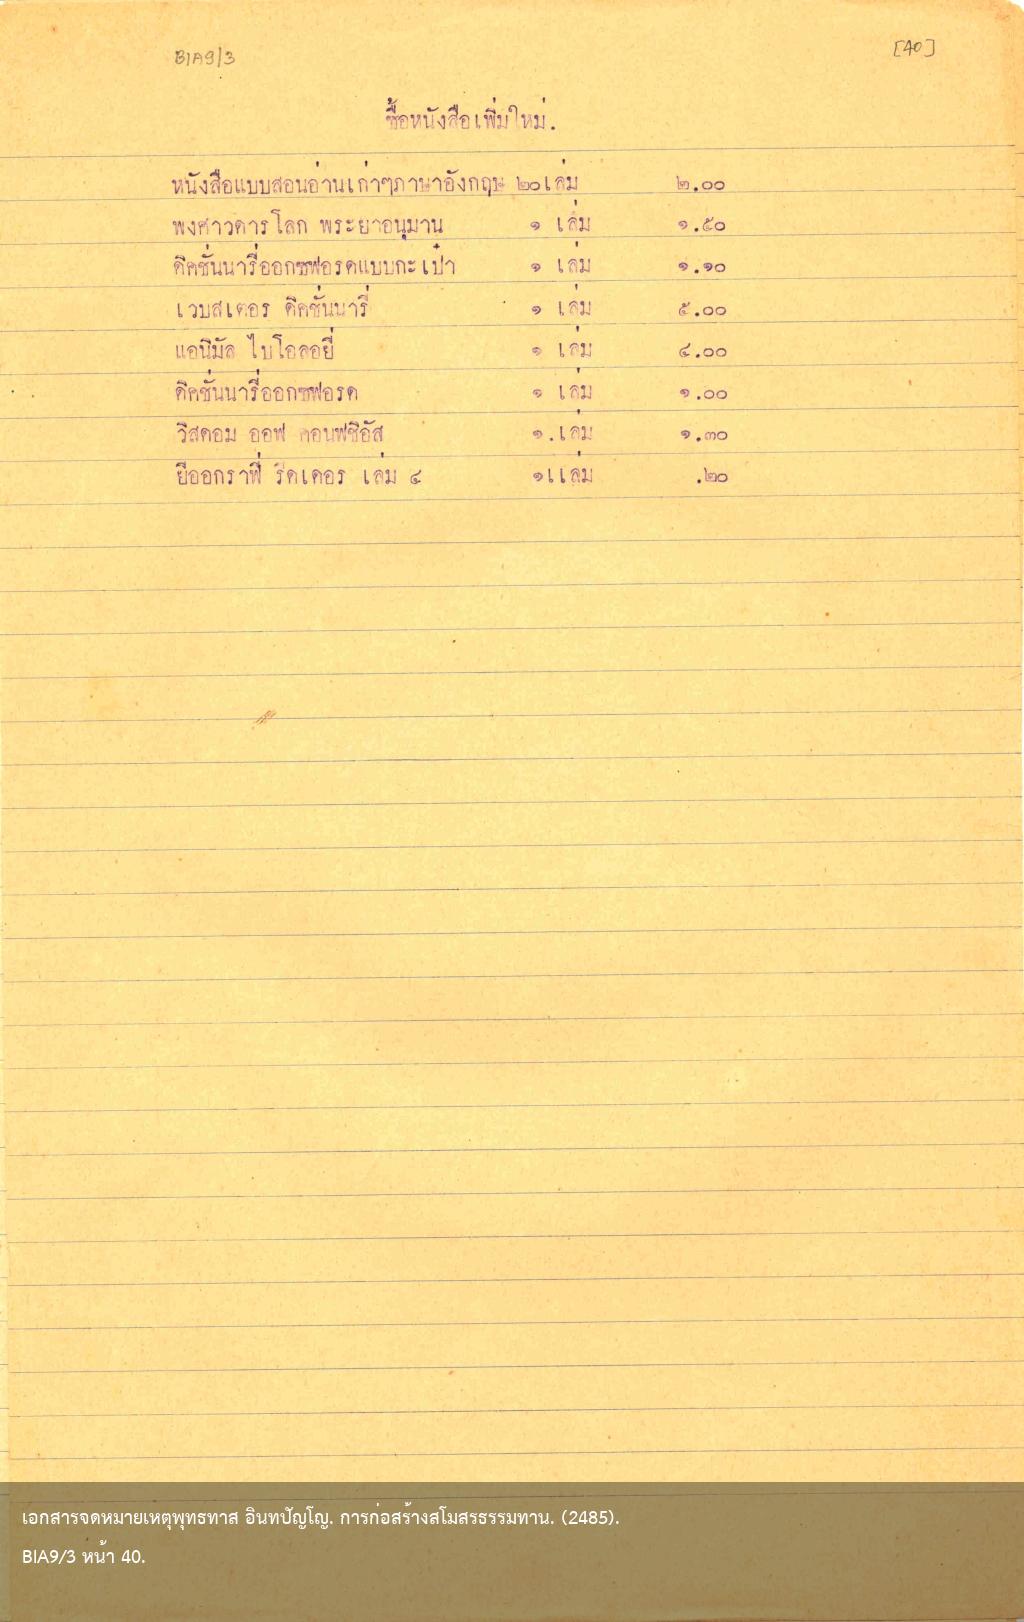 BIA9/3
[40]
ซื้อหนังสือเพิ่มใหม่.
หนังสือแบบสอนอ่านเก่าๆภาษาอังกฤษ ๒๐เล่ม ๒.๐๐
พงศาวดารโลก พระยาอนุมาน ๑ เล่ม ๑.๕๐
ดิคชั่นนารี่ออกซฟอรดแบบกะเป๋า ๑ เล่ม ๑.๑๐
เวบสเตอร ดิคชั่นนารี่ ๑ เล่ม ๕.๐๐
แอนิมัล ไบโอลอยี่ ๑ เล่ม ๔.๐๐
ดิคชั่นนารี่ออกซฟอรด ๑ เล่ม ๑.๐๐
วิสดอม ออฟ คอนฟซิอัส ๑.เล่ม ๑.๓๐
ยีออกราฟี่ รีดเดอร เล่ม ๔ ๑เเล่ม .๒๐
เอกสารจดหมายเหตุพุทธทาส อินทปัญโญ. การก่อสร้างสโมสรธรรมทาน. (2485).
BIA9/3 หน้า 40.